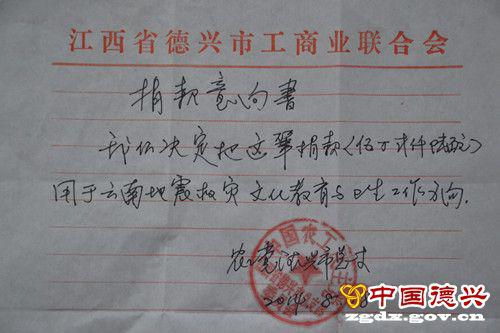 江西省德兴市工商业联合会
捐款意向书
我们决定把这笔捐款(伍万
用于云南地震救灾文化教育与卫生工作方向.
农工党德兴市总支
2014.8.8
中国德兴
zgdx.gov.cn